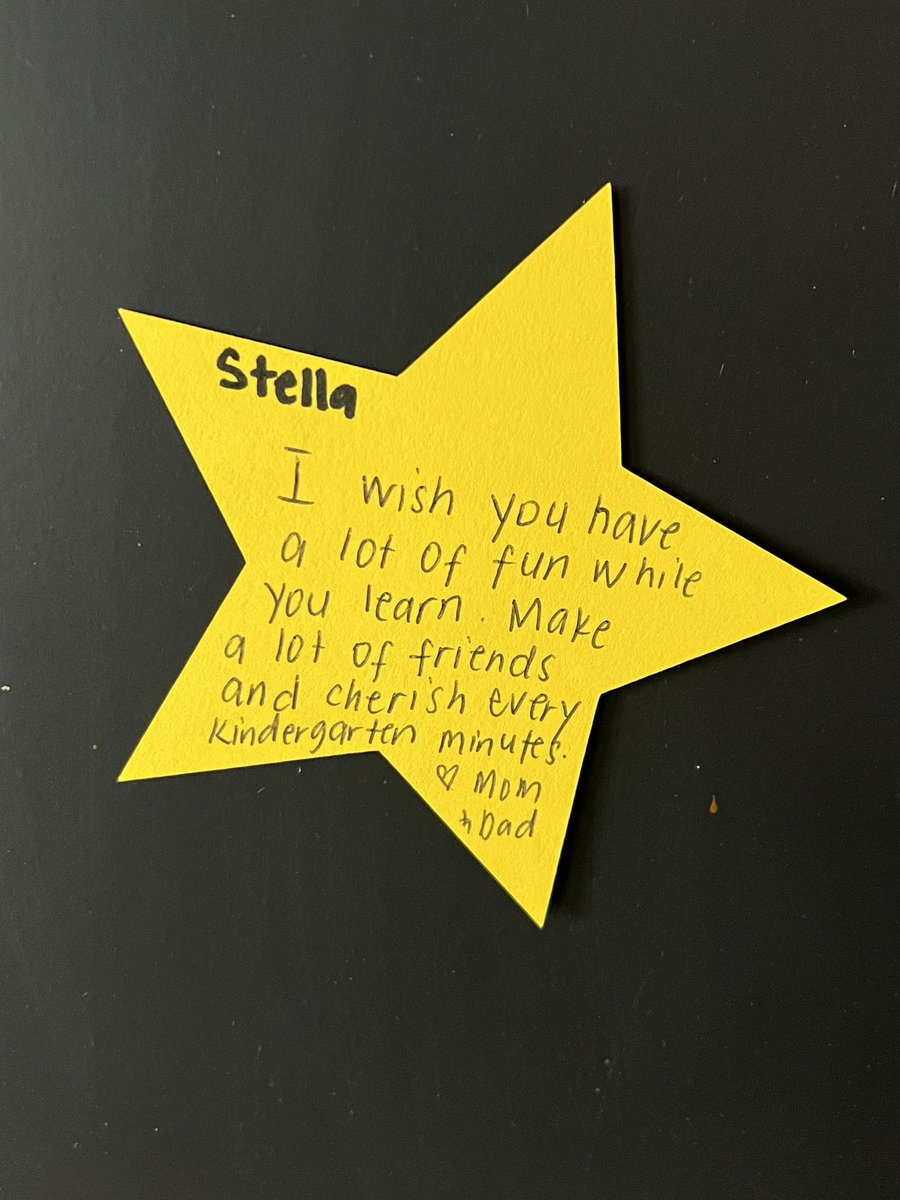 Stella
I wish you have
a lot of fun while
you learn. Make
a lot of friends
and cherish every
Kindergarten minutes.
♡ Mom
+ Dad